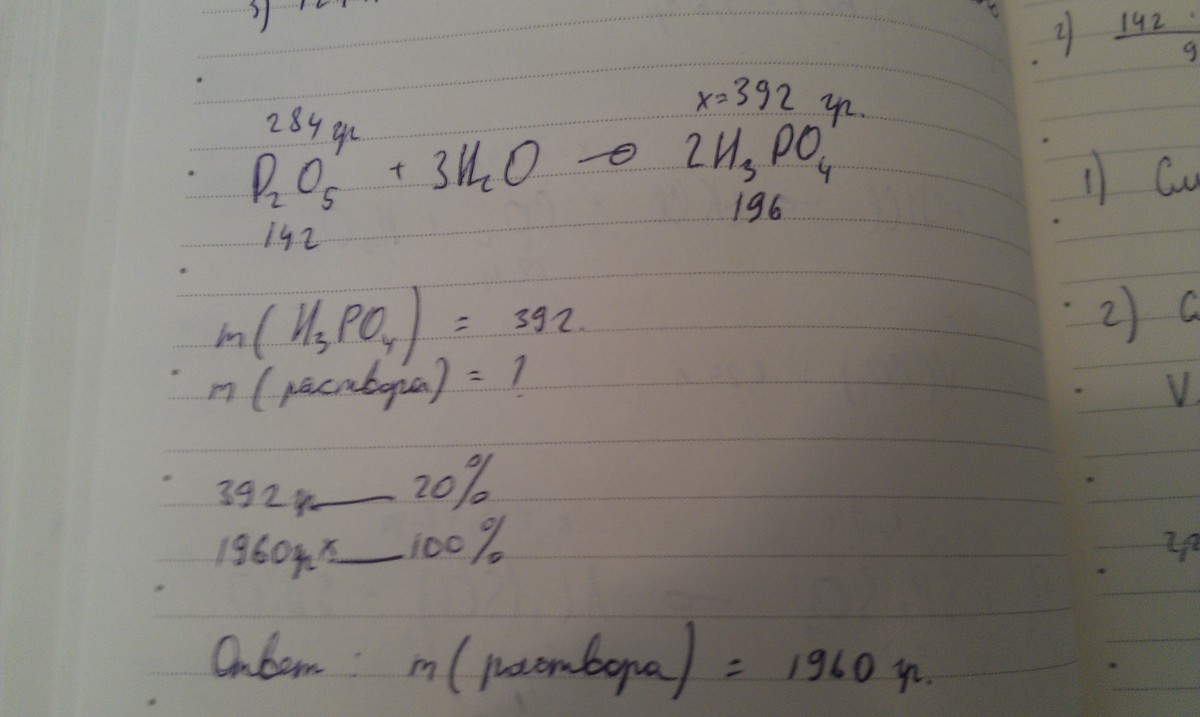 3)
284 гр x=392 гр.
P₂O₅ + 3H₂O → 2H₃PO₄
142 196
m(H₃PO₄) = 392.
m(раствора) = ?
392 гр — 20%
1960 гр x — 100%
Ответ: m(раствора) = 1960 гр.
2) 142
9
1)
2)
V